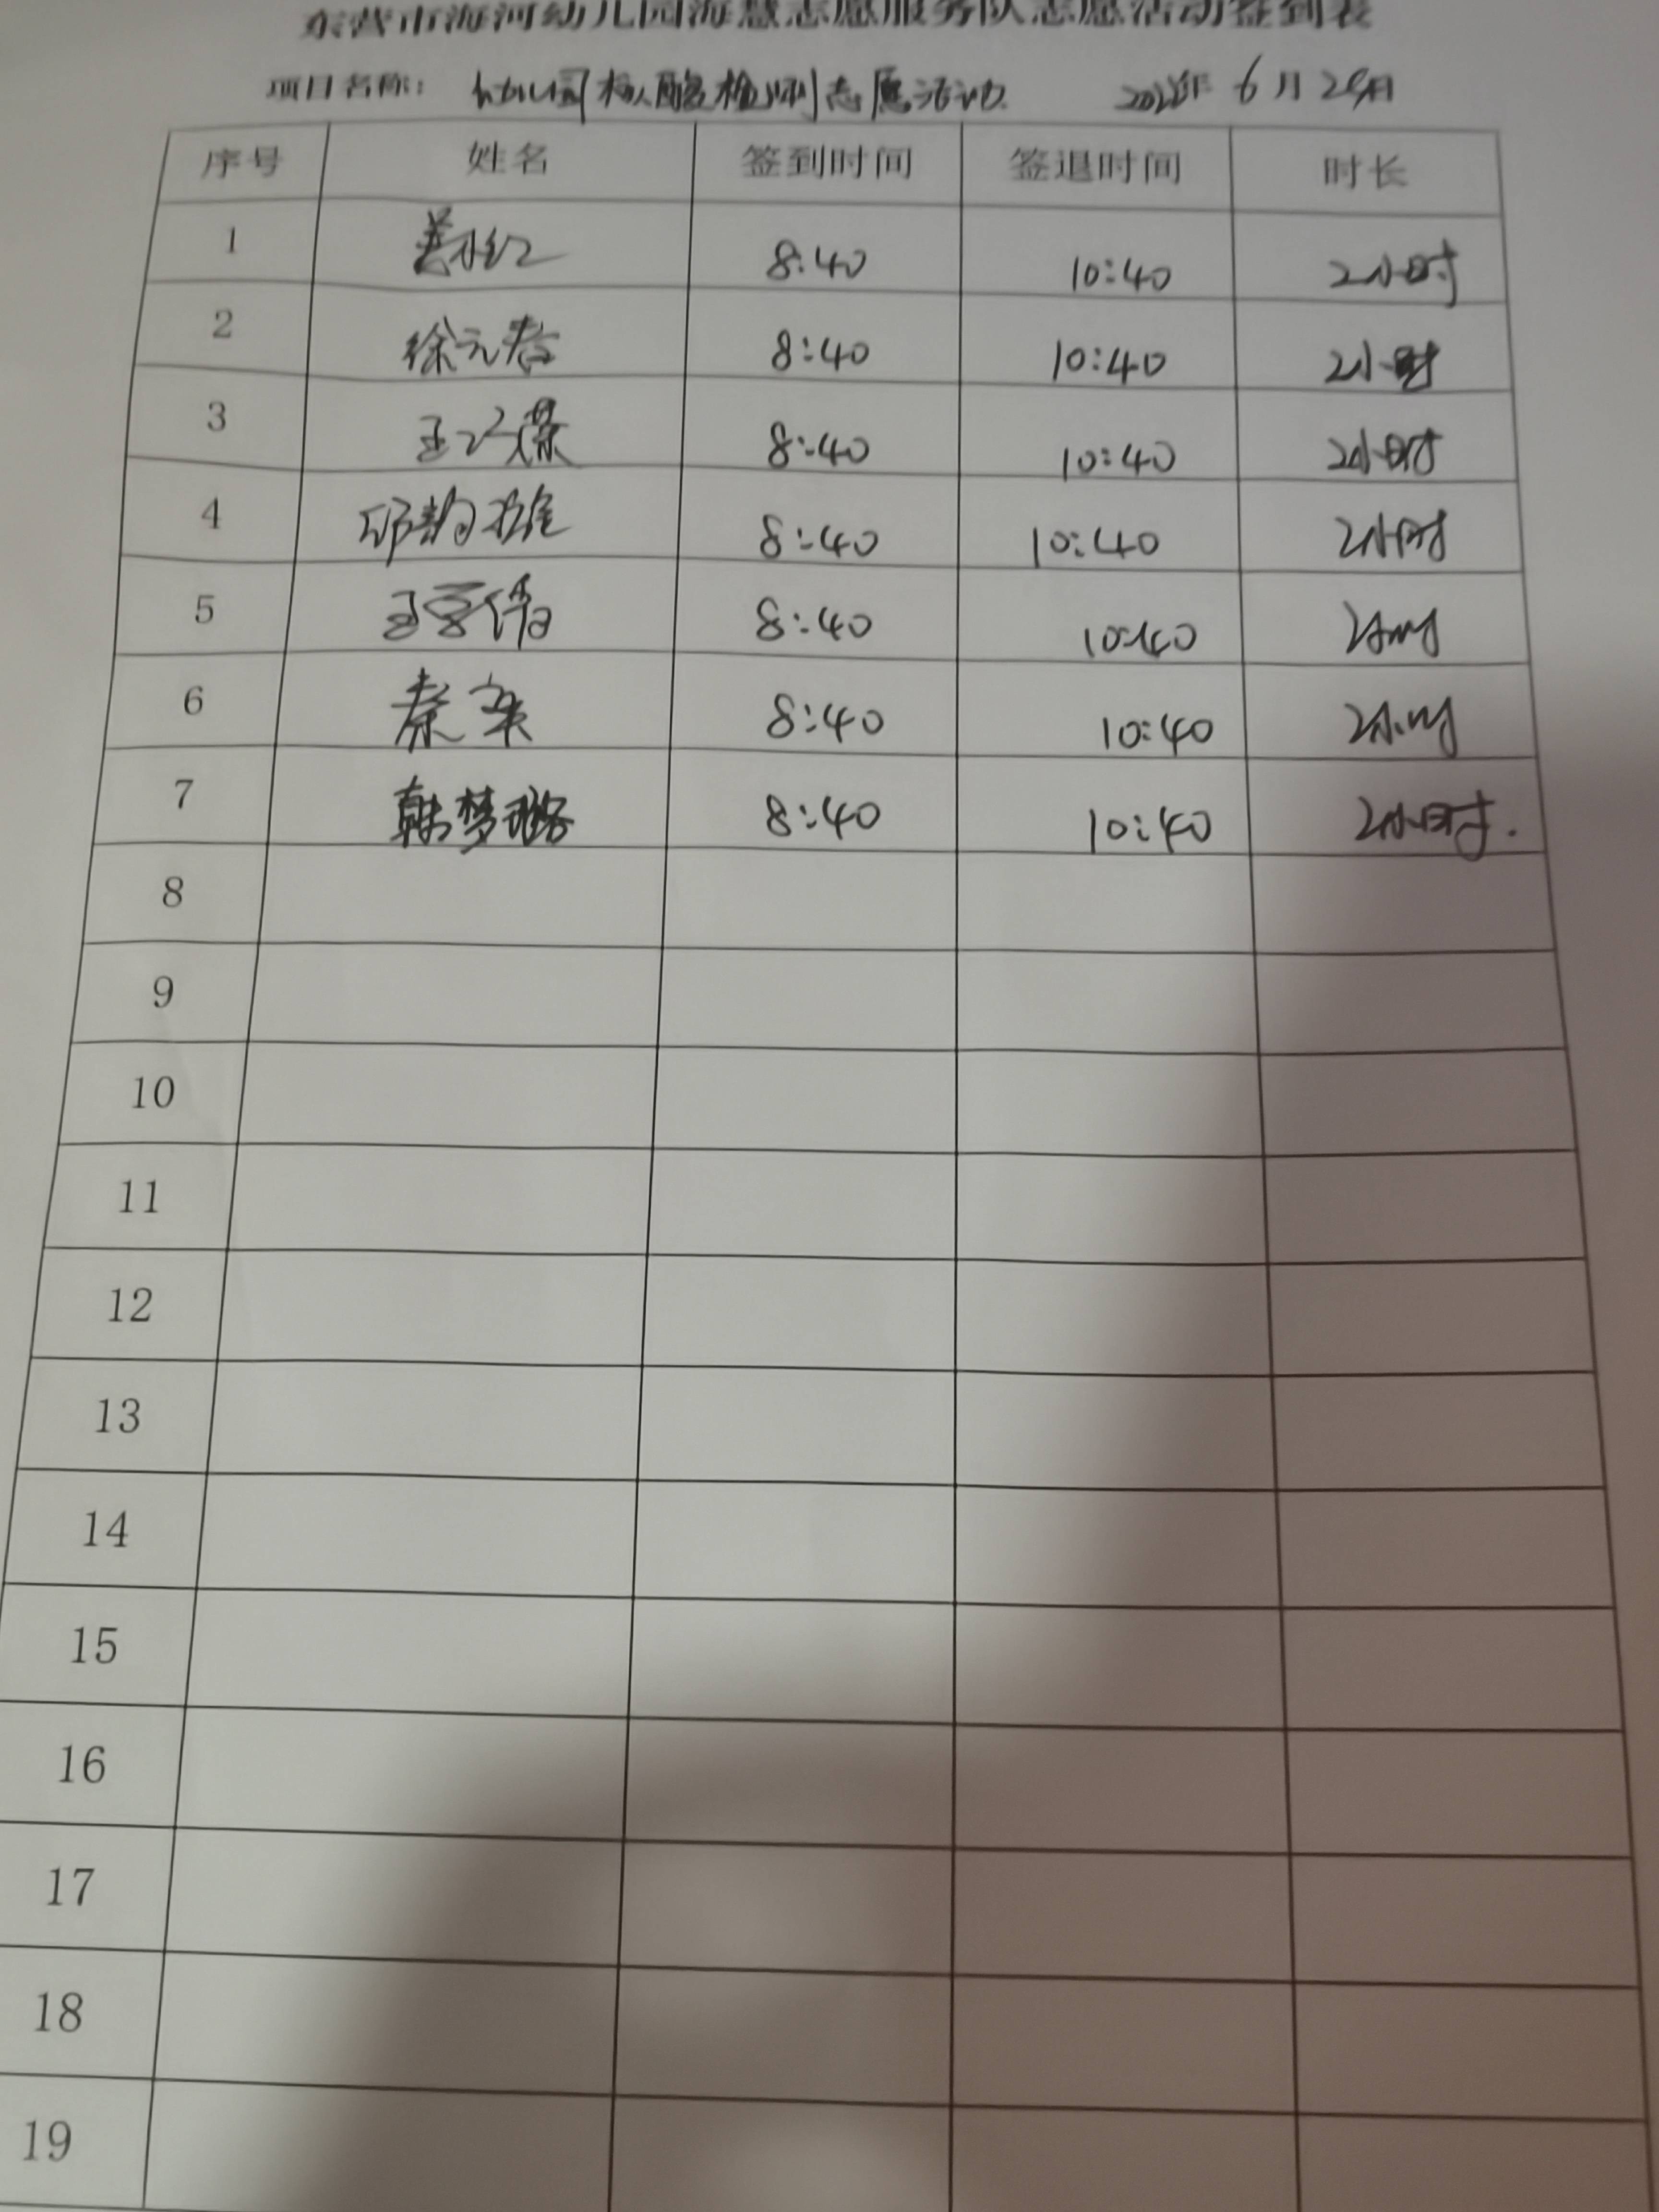 东营市海河幼儿园海慧志愿服务队志愿活动签到表
项目名称： 幼儿园核酸检测志愿活动 2022年 6月29日
序号 姓名 签到时间 签退时间 时长
1 姜小红 8:40 10:40 2小时
2 徐元春 8:40 10:40 2小时
3 王 8:40 10:40 2小时
4 邱韵 8:40 10:40 2小时
5 王雪伟 8:40 10:40 2小时
6 秦 8:40 10:40 2小时
7 韩梦璐 8:40 10:40 2小时.
8
9
10
11
12
13
14
15
16
17
18
19